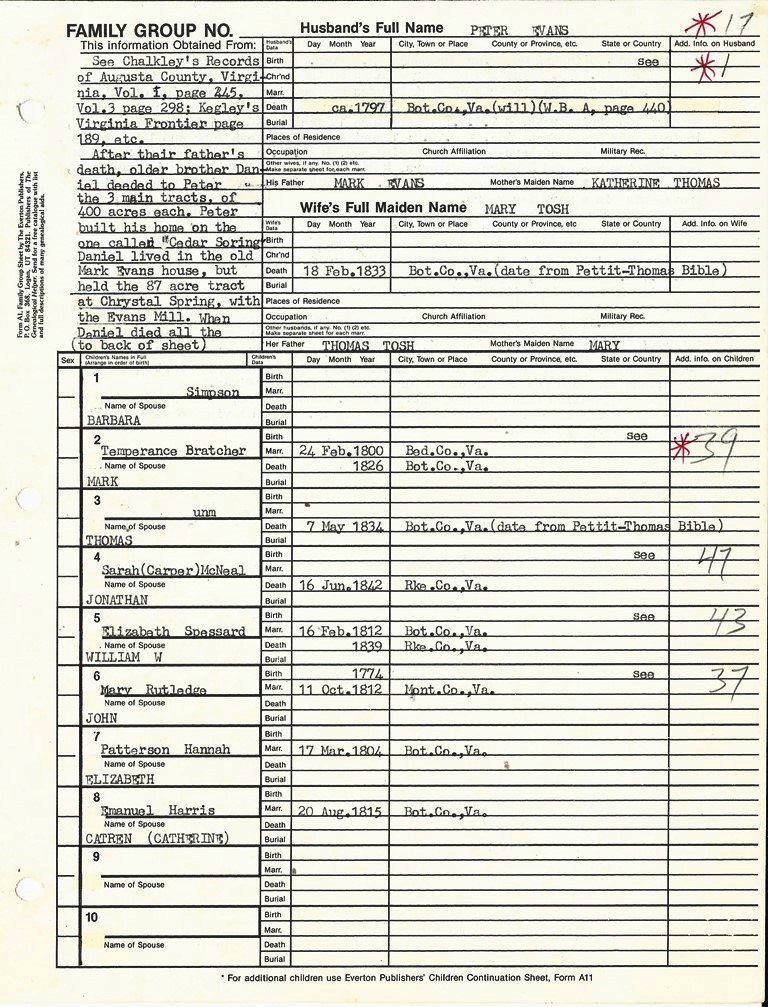 FAMILY GROUP NO.
Husband's Full Name PETER EVANS
*17
This information Obtained From:
Husband's Data Day Month Year City, Town or Place County or Province, etc. State or Country Add. Info. on Husband
See Chalkley's Records
of Augusta County, Virgi-
nia, Vol. 1, page 245,
Vol.3 page 298; Kegley's
Virginia Frontier page
189, etc.
After their father's
death, older brother Dan-
iel deeded to Peter
the 3 main tracts, of
400 acres each. Peter
built his home on the
one called "Cedar Soring
Daniel lived in the old
Mark Evans house, but
held the 87 acre tract
at Chrystal Spring, with
the Evans Mill. When
Daniel died all the
(to back of sheet)
Birth See *1
Chr'nd
Marr.
Death ca.1797 Bot.Co.,Va.(will)(W.B. A, page 440)
Burial
Places of Residence
Occupation Church Affiliation Military Rec.
Other wives, if any. No. (1) (2) etc.
Make separate sheet for each marr.
His Father MARK EVANS Mother's Maiden Name KATHERINE THOMAS
Wife's Full Maiden Name MARY TOSH
Wife's Data Day Month Year City, Town or Place County or Province, etc State or Country Add. Info. on Wife
Birth
Chr'nd
Death 18 Feb.1833 Bot.Co.,Va.(date from Pettit-Thomas Bible)
Burial
Places of Residence
Occupation Church Affiliation Military Rec.
Other husbands, if any. No. (1) (2) etc.
Make separate sheet for each marr.
Her Father THOMAS TOSH Mother's Maiden Name MARY
Sex Children's Names in Full (Arrange in order of birth) Children's Data Day Month Year City, Town or Place County or Province, etc. State or Country Add. info. on Children
1 Birth
Simpson Marr.
Name of Spouse Death
BARBARA Burial
2 Birth See *39
Temperance Bratcher Marr. 24 Feb.1800 Bed.Co.,Va.
Name of Spouse Death 1826 Bot.Co.,Va.
MARK Burial
3 Birth
unm Marr.
Name of Spouse Death 7 May 1834 Bot.Co.,Va.(date from Pettit-Thomas Bible)
THOMAS Burial
4 Birth See 47
Sarah(Carper)McNeal Marr.
Name of Spouse Death 16 Jun.1842 Rke.Co.,Va.
JONATHAN Burial
5 Birth See 43
Elizabeth Spessard Marr. 16 Feb.1812 Bot.Co.,Va.
Name of Spouse Death 1839 Rke.Co.,Va.
WILLIAM W Burial
6 Birth 1774 See 37
Mary Rutledge Marr. 11 Oct.1812 Mont.Co.,Va.
Name of Spouse Death
JOHN Burial
7 Birth
Patterson Hannah Marr. 17 Mar.1804 Bot.Co.,Va.
Name of Spouse Death
ELIZABETH Burial
8 Birth
Emanuel Harris Marr. 20 Aug.1815 Bot.Co.,Va.
Name of Spouse Death
CATREN (CATHERINE) Burial
9 Birth
Marr.
Name of Spouse Death
Burial
10 Birth
Marr.
Name of Spouse Death
Burial
* For additional children use Everton Publishers' Children Continuation Sheet, Form A11
Form A1, Family Group Sheet by The Everton Publishers,
P. O. Box 368, Logan, UT 84321. Publishers of The
Genealogical Helper. Send for a free catalogue with list
and full descriptions of many genealogical aids.